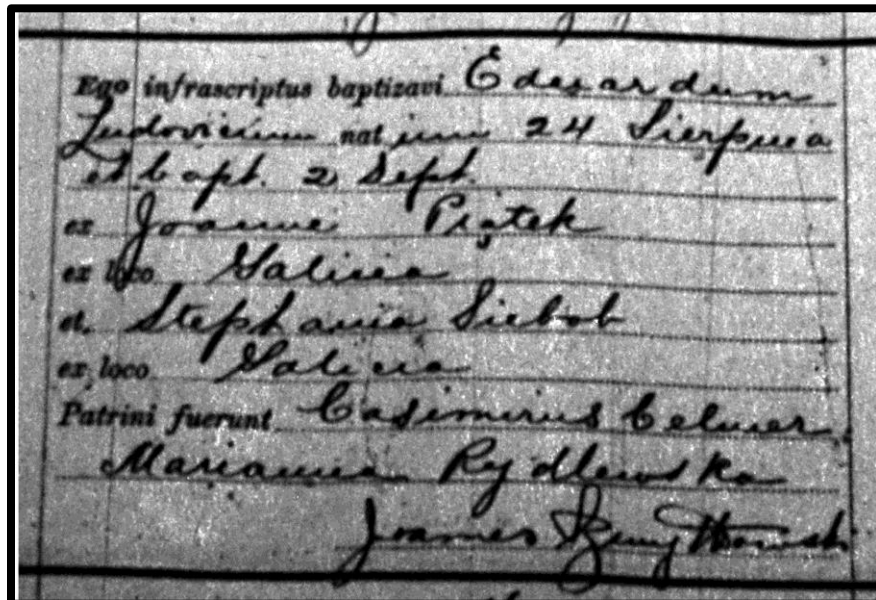 Ego infrascriptus baptizavi Eduardum
Ludovicum natum 24 Sierpnia
et bapt. 2 Sept.
ex Joanne Piątek
ex loco Galicia
et. Stephania
ex loco Galicia
Patrini fuerunt Casimirus Celmer
Marianna Rydlewska
Joannes